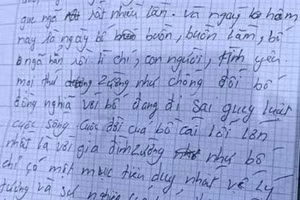 gục ngã rất nhiều lần. và ngay hôm
nay là ngày bố buồn, buồn lắm, bố
ngã hẳn rồi lí chí, con người, tình yêu
mọi thứ dường như chống đối bố
đồng nghĩa với bố đang đi sai quy luật
cuộc sống cuộc đời của bố cái lỗi lớn
nhất là với gia đình dường như bố
chỉ có một mục tiêu duy nhất về lý
tưởng và sự nghiệp